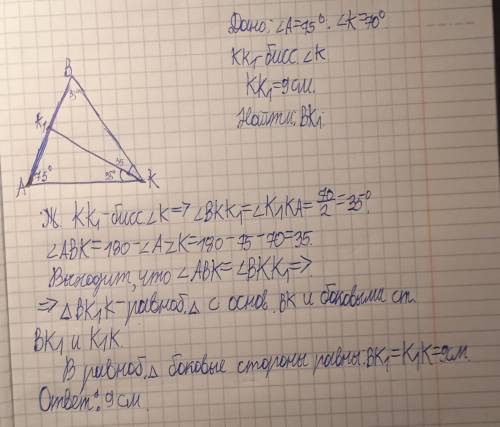 Дано: ∠A=75°. ∠K=70°
KK₁-бисс. ∠K
KK₁=9см.
Найти: BK₁.
B
35°
K₁
A
75°
35°
35
K
KK₁-бисс. ∠K=> ∠BKK₁=∠K₁KA= 70/2=35°.
∠ABK=180-∠A∠K=180-75-70=35.
Выходит, что ∠ABK=∠BKK₁=>.
=> △BK₁K-равноб.△ с основ. BK и боковыми ст.
BK₁ и K₁K.
В равноб.△ боковые стороны равны. BK₁=K₁K=9см.
Ответ: 9см.